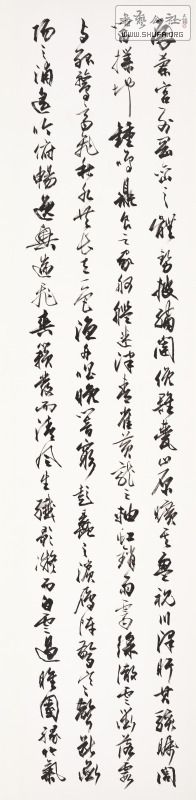 WWW.SHUFA.ORG
殿蘭宮列岡巒之體勢披繡闥俯雕甍山原曠其盈視川澤盱其駭矚閭
閻撲地鐘鳴鼎食之家舸艦迷津青雀黃龍之舳虹銷雨霽彩徹雲衢落霞
與孤鶩齊飛秋水共長天一色漁舟唱晚響窮彭蠡之濱雁陣驚寒聲斷衡
陽之浦遙吟俯暢逸興遄飛爽籟發而清風生纖歌凝而白雲遏睢園綠竹氣